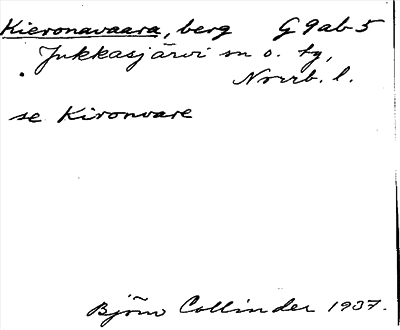 Kieronavaara, berg G9ab5
Jukkasjärvi sn o. tg,
Norrb. l.
se Kironvare
Björn Collinder 1937.